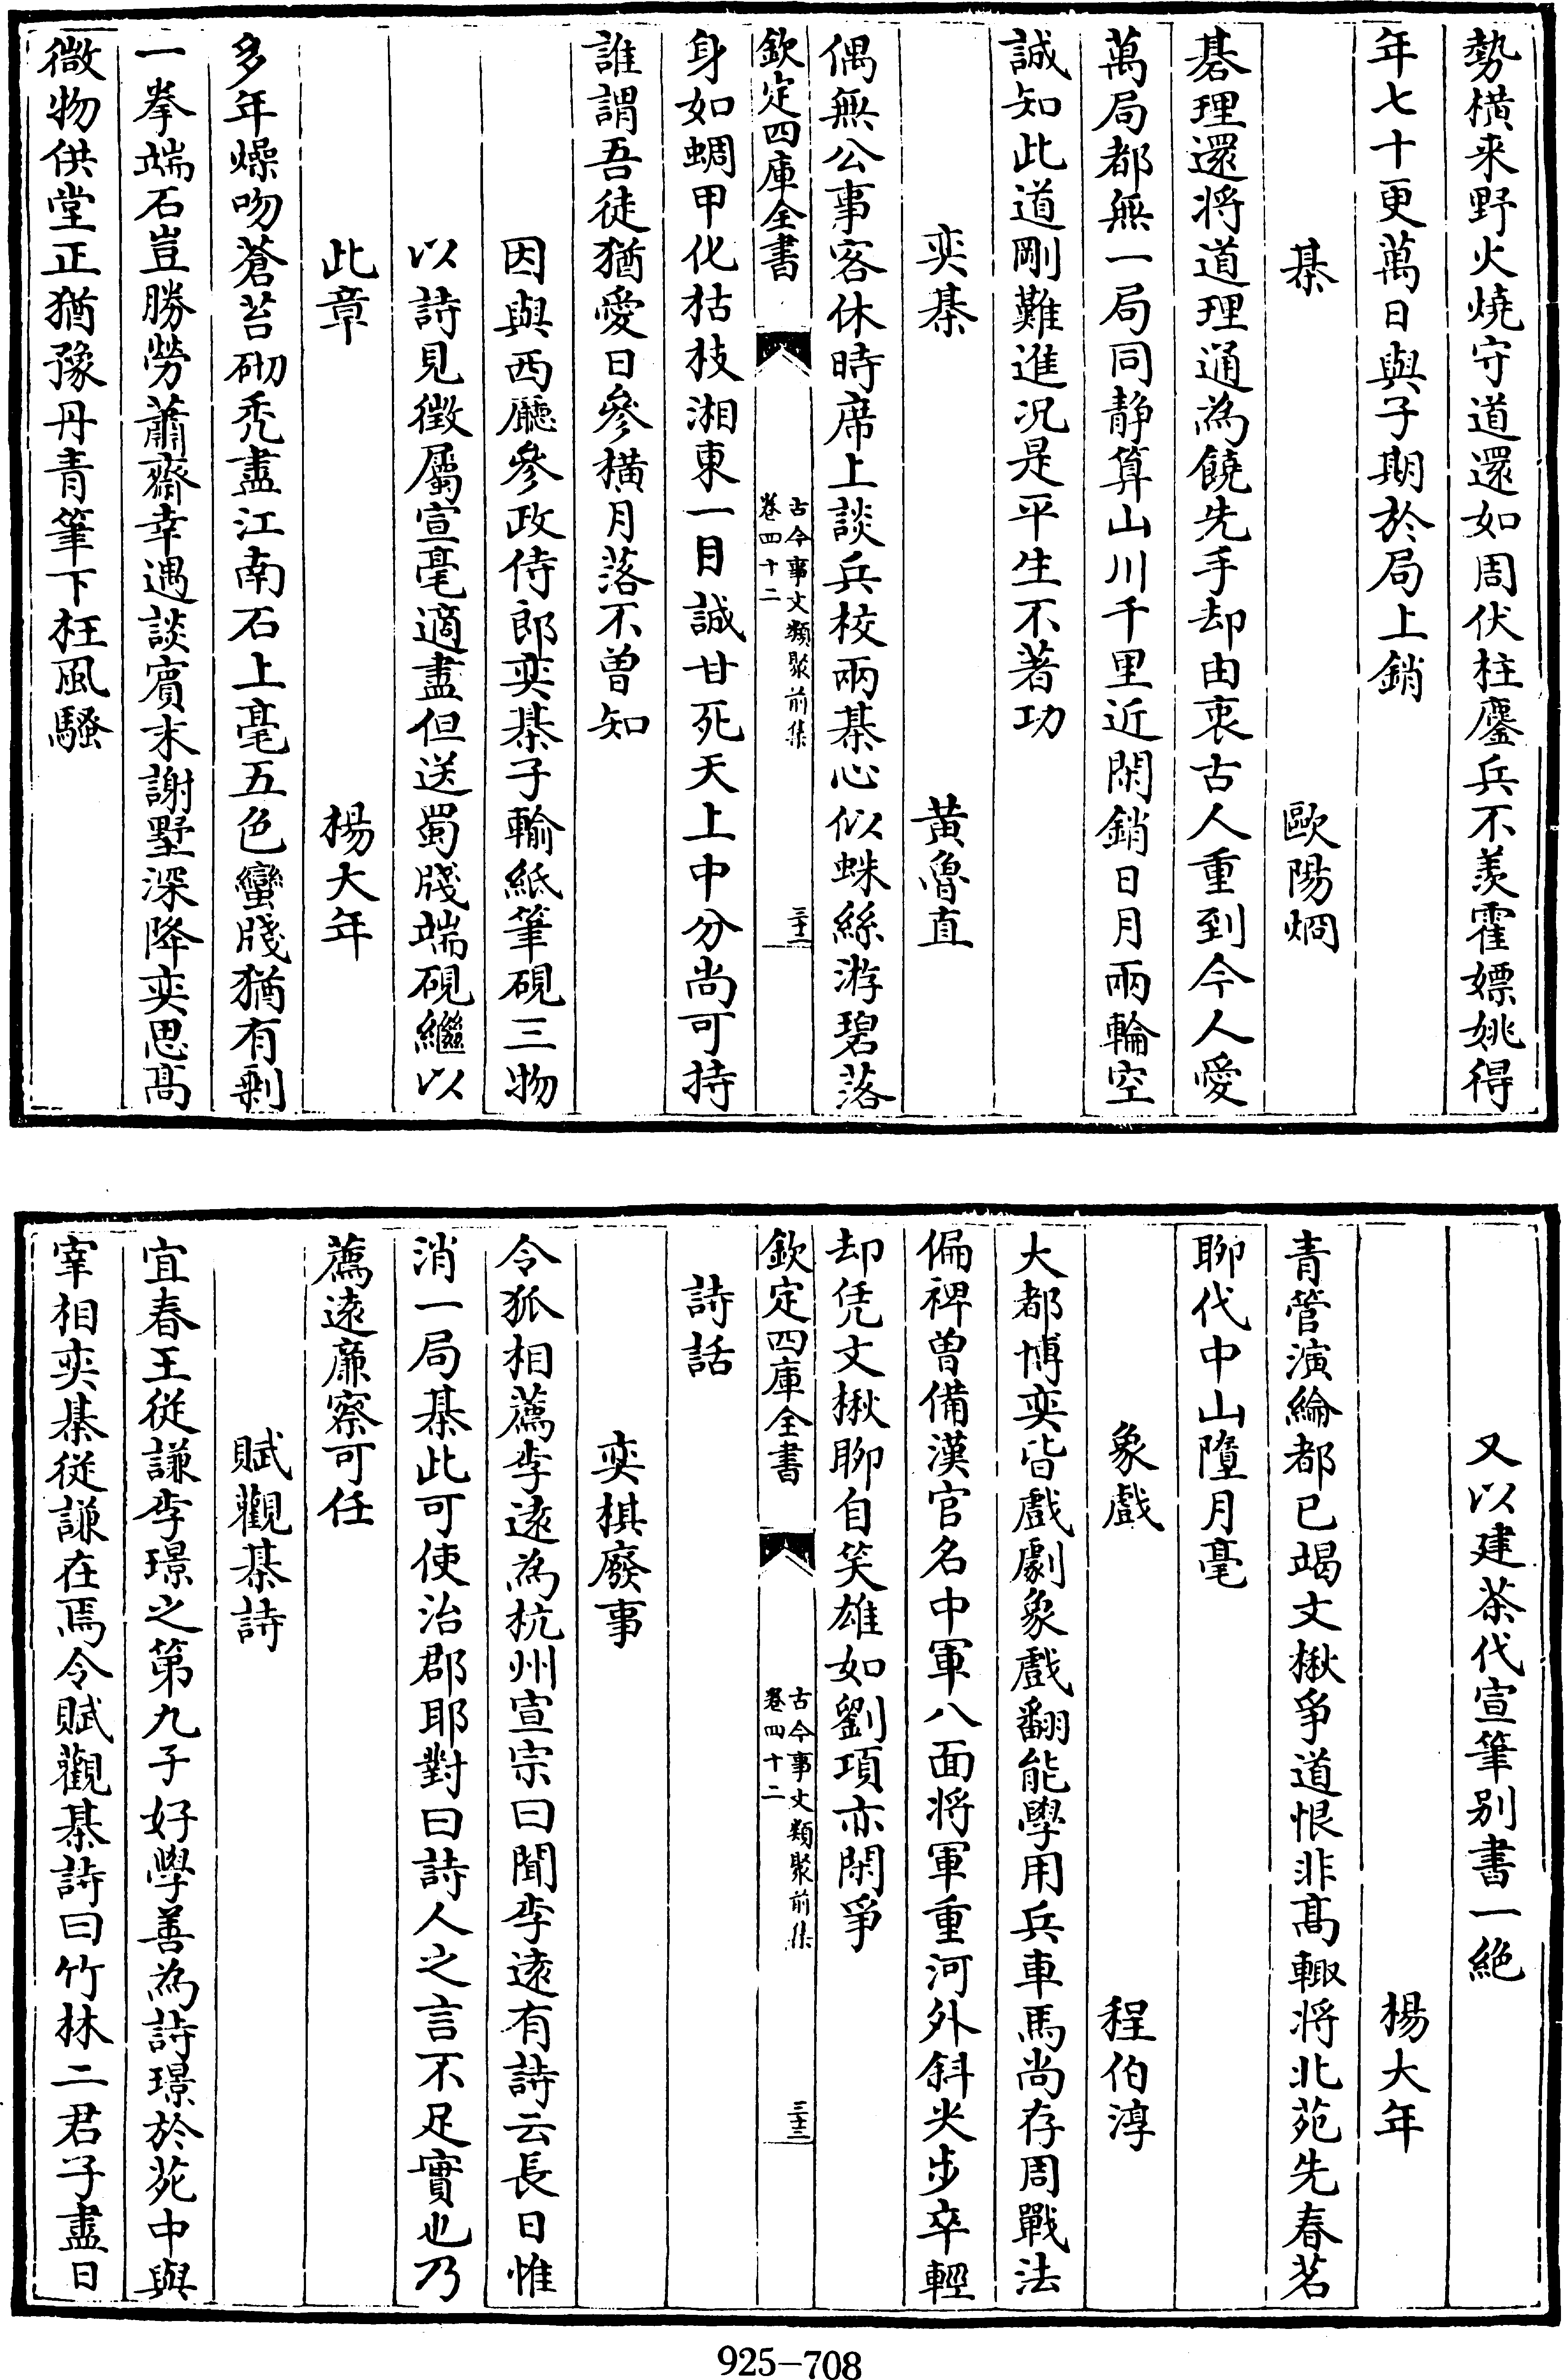 勢横来野火燒守道還如周伏柱鏖兵不羨霍嫖姚得
年七十更萬日與子期於局上銷
棊　　歐陽烱
棊理還将道理通為饒先手却由衷古人重到今人愛
萬局都無一局同静算山川千里近閑銷日月兩輪空
誠知此道剛難進况是平生不著功
奕棊　　黄魯直
偶無公事客休時席上談兵校兩棊心似蛛絲游碧落
欽定四庫全書　古今事文類聚前集卷四十二　三十二
身如蜩甲化枯枝湘東一目誠甘死天上中分尚可持
誰謂吾徒猶愛日參橫月落不曾知
因與西廳參政侍郎奕棊子輸紙筆硯三物
以詩見徴屬宣毫適盡但送蜀牋端硯繼以
此章　　楊大年
多年燥吻蒼苔砌禿盡江南石上毫五色蠻牋猶有剩
一拳端石豈勝勞蕭齋幸遇談賓末謝墅深降奕思髙
微物供堂正猶豫丹青筆下枉風騷
又以建茶代宣筆别書一絶
楊大年
青管演綸都已竭文楸爭道恨非髙輙将北苑先春茗
聊代中山墮月毫
象戲　　程伯淳
大都博奕皆戲劇象戲翻能學用兵車馬尚存周戰法
偏裨曾備漢官名中軍八面将軍重河外斜尖步卒輕
却凭文楸聊自笑雄如劉項亦閑爭
欽定四庫全書　古今事文類聚前集卷四十二　三十三
詩話
奕棋廢事
令狐相薦李逺為杭州宣宗曰聞李逺有詩云長日惟
消一局棊此可使治郡耶對曰詩人之言不足實也乃
薦逺亷察可任
賦觀棊詩
宜春王從謙李璟之第九子好學善為詩璟於苑中與
宰相奕棊從謙在焉令賦觀棊詩曰竹林二君子盡日
925-708